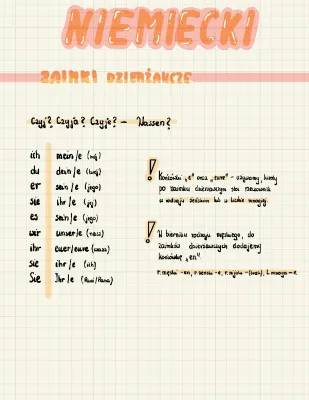 NIEMIECKI
ZAIMKI DZIERŻAWCZE
Czyj? Czyja? Czyje? - Wessen?
ich mein/e (mój)
du dein/e (twój)
er sein/e (jego)
sie ihr/e (jej)
es sein/e (jego)
wir unser/e (nasz)
ihr euer/eure (wasz)
sie ihr/e (ich)
Sie Ihr/e (Pani/Pana)
! Końcówki „e" oraz „eure" - używamy, kiedy
po zaimku dzierżawczym stoi rzeczownik
w rodzaju żeńskim lub w liczbie mnogiej.
! W bierniku rodzaju męskiego, do
zaimków dzierżawczych dodajemy
końcówkę „en"
r. męski -en, r. żeński -e, r. nijaki -(brak), l. mnoga -e